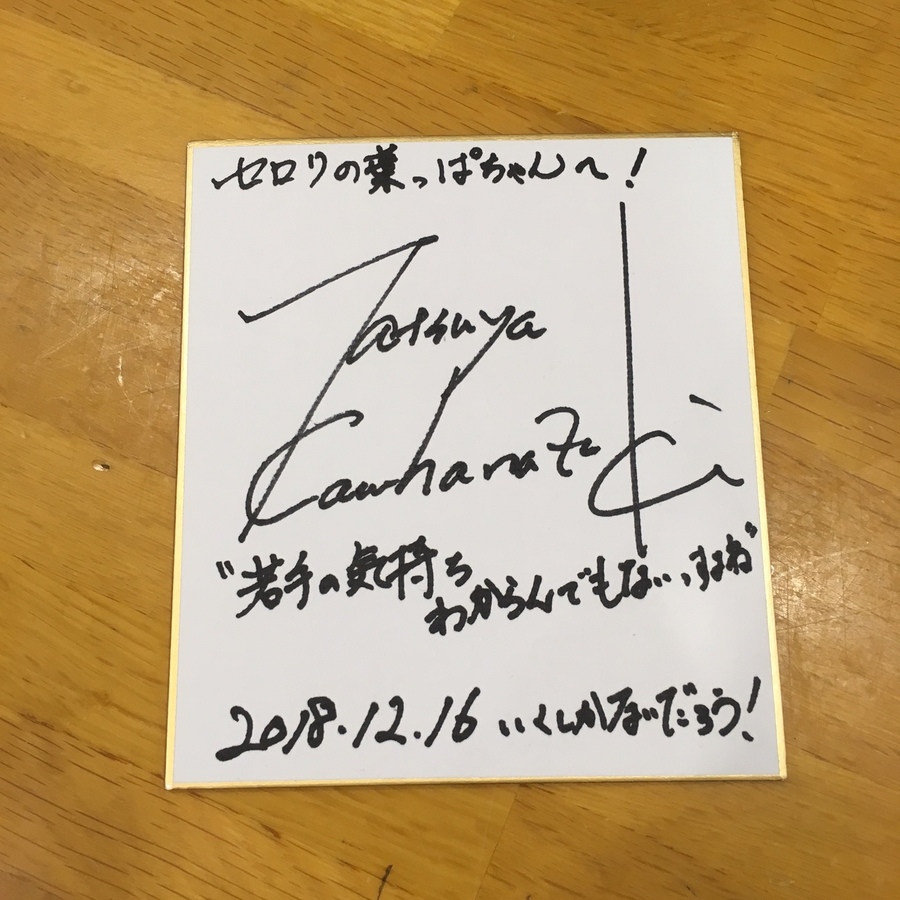 セロリの葉っぱちゃんへ!
Tatsuya
Kawharazuki
"若手の気持ち
わからんでもないっすね"
2018.12.16 いくしかないだろう!